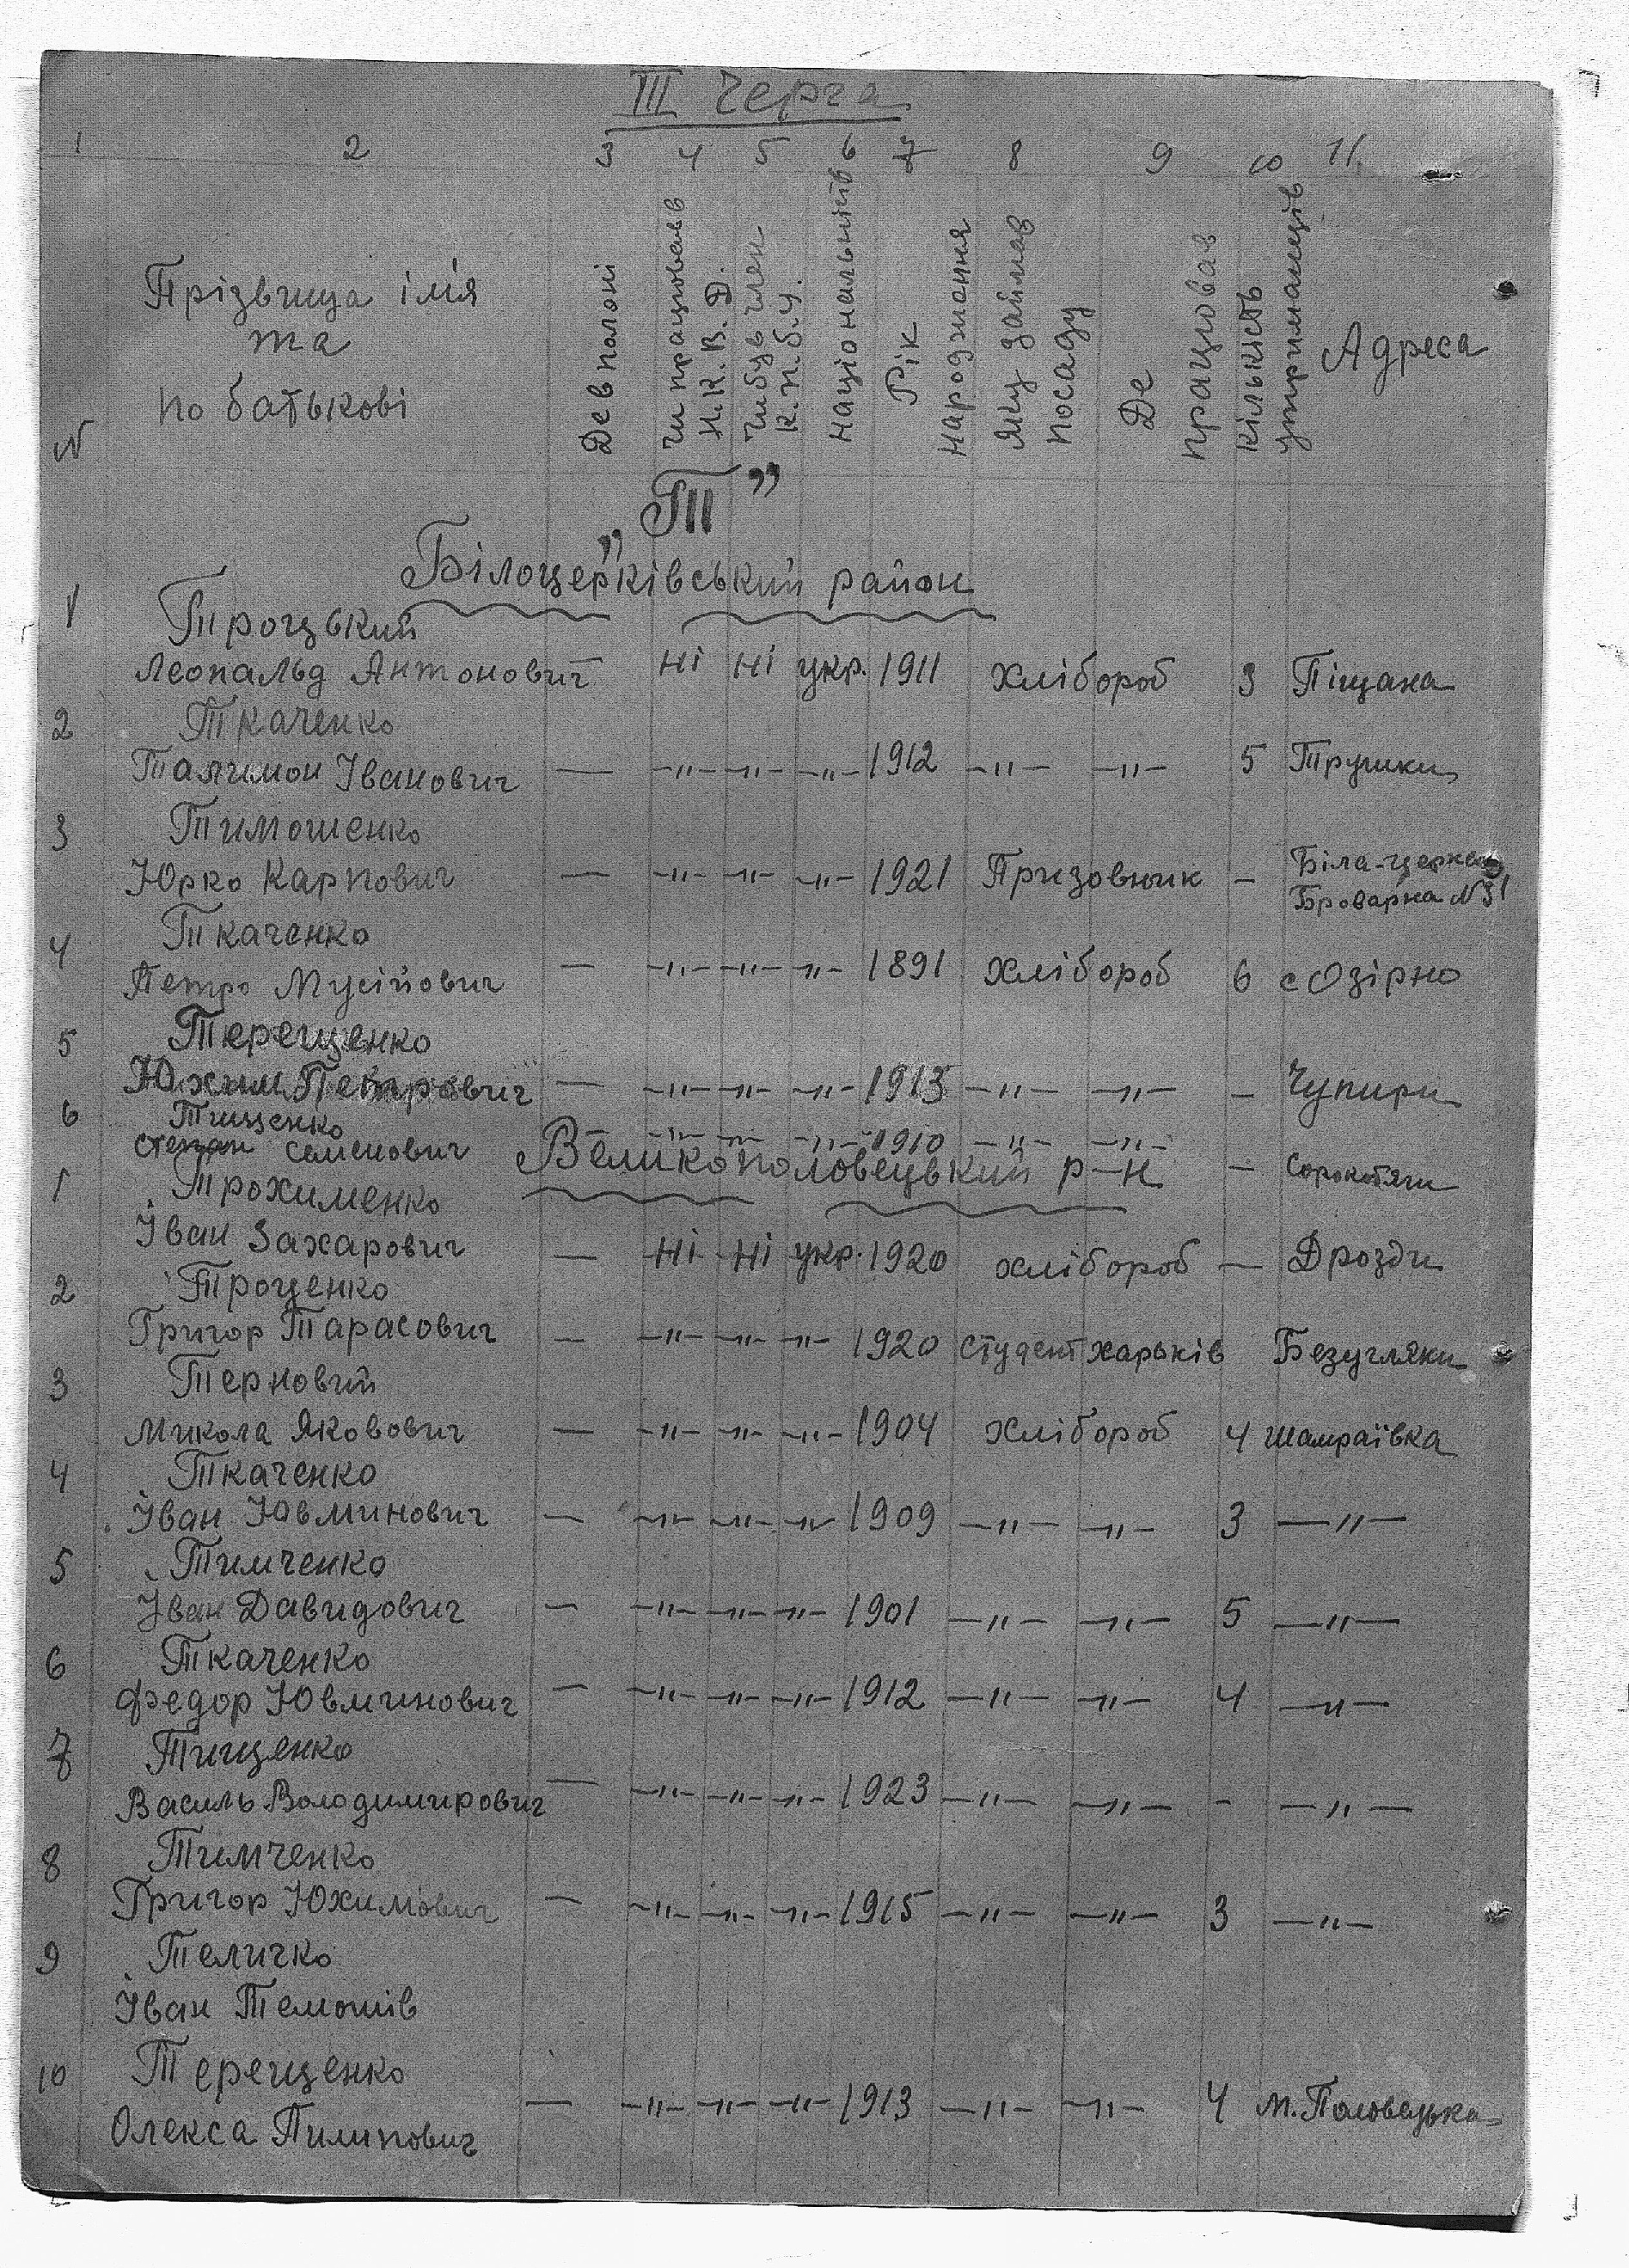 III Черга
1 2 3 4 5 6 7 8 9 10 11
N
Прізвища ім'я
та
по батькові
Де в полоні
Чи працював в
Н.К.В.Д.
Чи був член
К.П.б.У.
Національність
Рік
народження
Яку займав
посаду
Де
працював
Кількість
утриманців
Адреса
„Т”
Білоцерківський район
1 Троцький
Леопальд Антонович — ні ні укр. 1911 хлібороб 3 Піщана
2 Ткаченко
Талимон Іванович — —"— —"— —"— 1912 —"— —"— 5 Трушки
3 Тимошенко
Юрко Карпович — —"— —"— —"— 1921 Призовник — Біла-церква
Броварна N 31
4 Ткаченко
Петро Мусійович — —"— —"— —"— 1891 хлібороб 6 с Озірно
5 Терещенко
Юхим Петрович — —"— —"— —"— 1913 —"— —"— — Чупири
6 Тищенко
Степан Семенович — —"— —"— —"— 1910 —"— —"— — Сорокотяги
Великополовецький р-н
1 Трохименко
Іван Захарович — ні ні укр. 1920 хлібороб — Дрозди
2 Троценко
Григор Тарасович — —"— —"— —"— 1920 студент харьків Безугляки
3 Терновий
Микола Яковович — —"— —"— —"— 1904 хлібороб 4 Шамраївка
4 Ткаченко
Іван Ювминович — —"— —"— —"— 1909 —"— —"— 3 —"—
5 Тимченко
Іван Давидович — —"— —"— —"— 1901 —"— —"— 5 —"—
6 Ткаченко
Федор Ювминович — —"— —"— —"— 1912 —"— —"— 4 —"—
7 Тищенко
Василь Володимирович — —"— —"— —"— 1923 —"— —"— - —"—
8 Тимченко
Григор Юхимович — —"— —"— —"— 1915 —"— —"— 3 —"—
9 Теличко
Іван Темошів
10 Терещенко
Олекса Пилипович — —"— —"— —"— 1913 —"— —"— 4 м. Половецьке